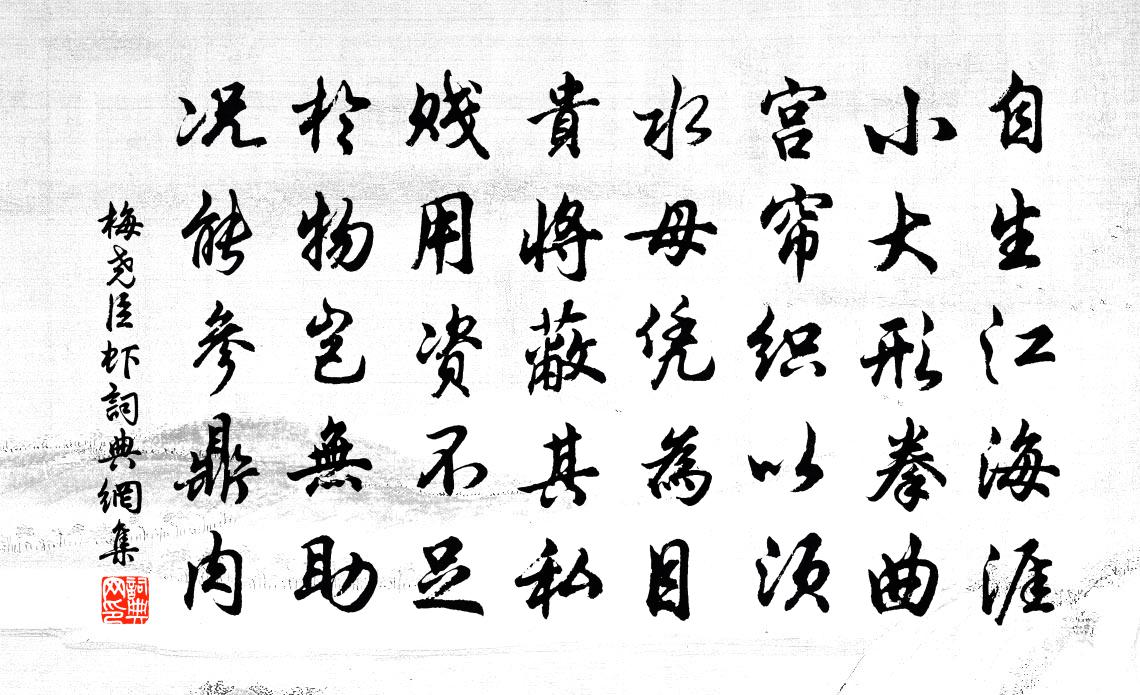 自生江海涯
小大形拳曲
宫帘织以须
水母凭為目
貴將蔽其私
贱用资不足
於物岂無助
况能參鼎肉
梅尧臣虾詞典網集
詞典网印